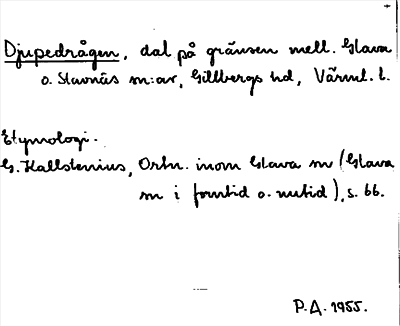 Djupedrågen, dal på gränsen mell. Glava
o. Stavnäs sn:ar, Gillbergs hd, Värml. l.
Etymologi.
G. Kallstenius, Ortn. inom Glava sn (Glava
sn i forntid o. nutid), s. 66.
P.A. 1955.